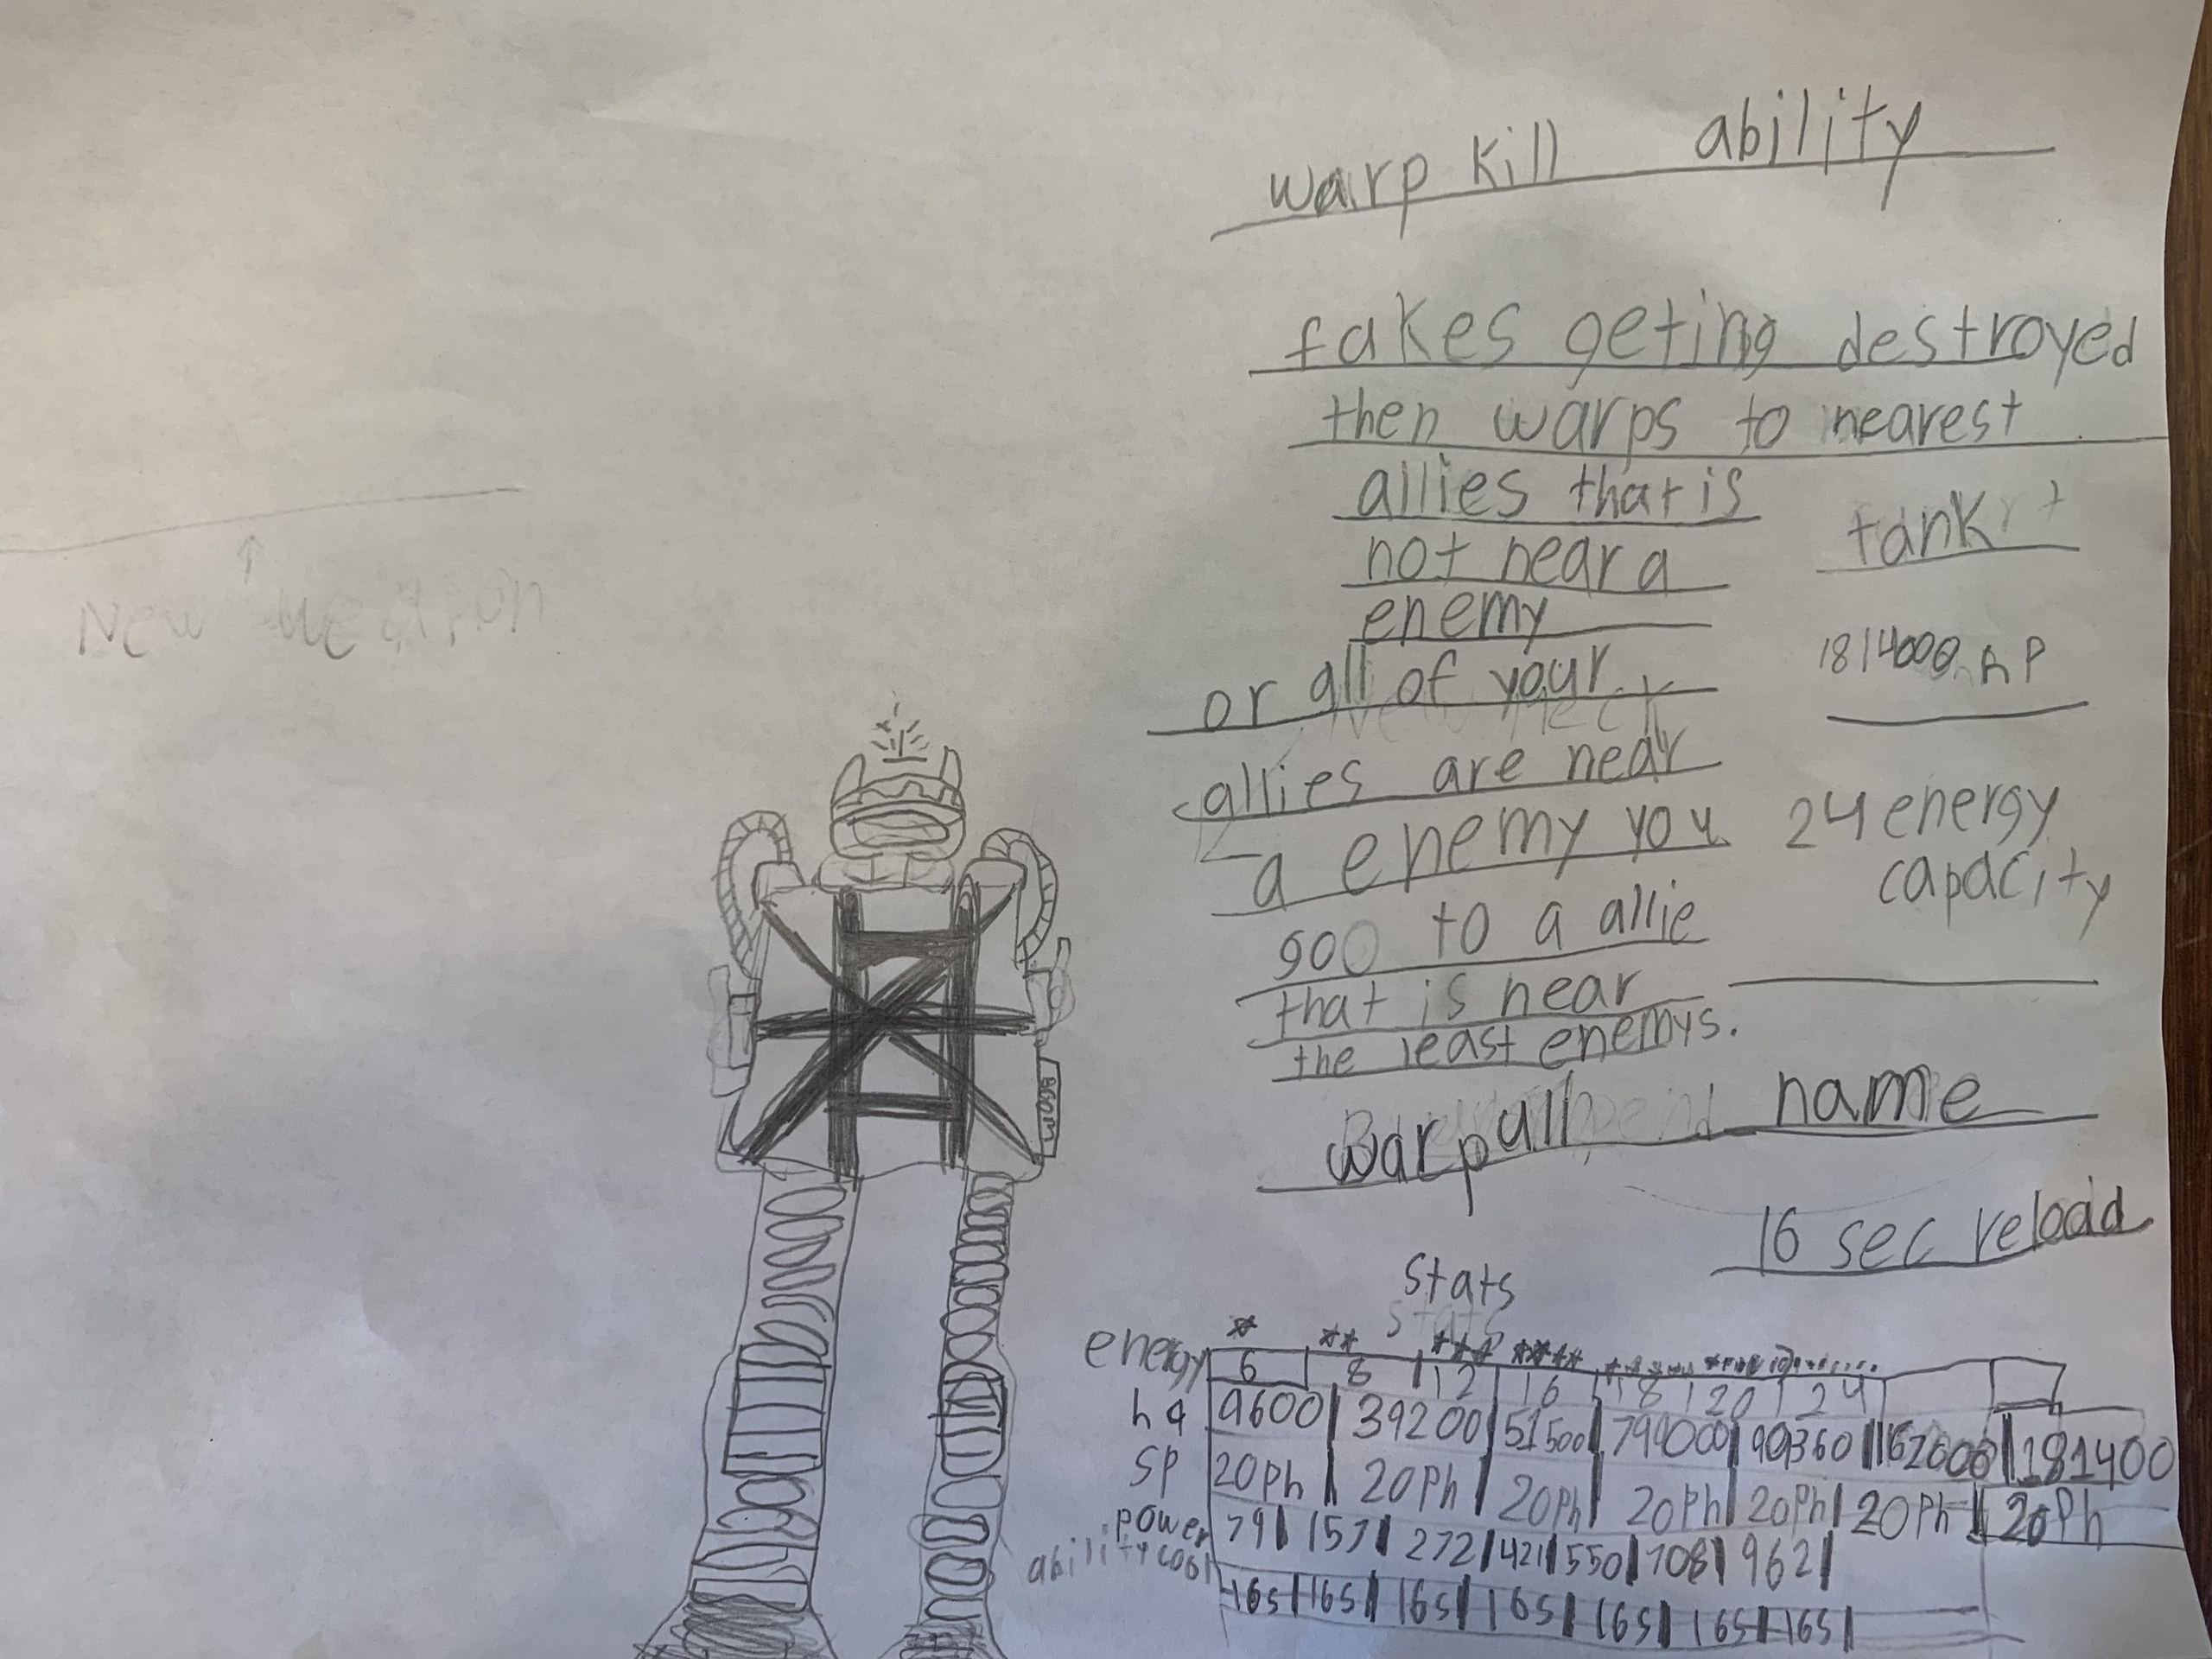 warp kill ability
fakes geting destroyed
then warps to nearest
allies that is
not near a
enemy
or all of your
allies are near
a enemy you
goo to a allie
that is near
the least enemys.
tank
1814000 hp
24 energy
capacity
New weapon
warpull name
16 sec reload
stats
* ** *** ****
energy 6 8 12 16 18 20 24
9600 39200 51500 794000 90360 162600 181400
sp 20Ph 20Ph 20Ph 20Ph 20Ph 20Ph 20Ph
power 79 157 272 421 550 708 962
ability cool 16s 16s 16s 16s 16s 16s 16s